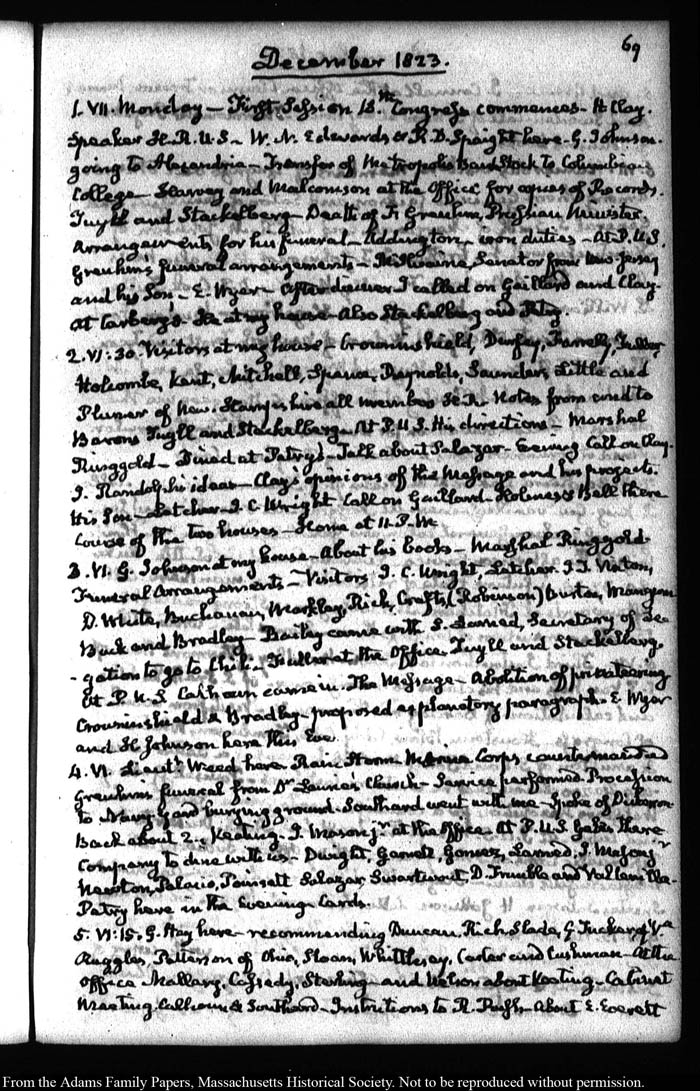 69
December 1823.
1. VII. Monday – First Session 18th Congress commences – H Clay.
Speaker H.R.U.S – W. N. Edwards & R. D. Spaight here – G. Johnson.
going to Alexandria – Transfer of Metropolis Bank Stock to Columbian
College – Slavey and Malcomson at the Office for copies of Records.
Tuyll and Stackelberg – Death of Fr Greuhm, Prussian Minister.
Arrangements for his funeral – Addington, iron duties – At P.U.S.
Greuhm's funeral arrangements – McIlvaine, Senator from New Jersey
and his Son – E. Wyer – After dinner I called on Gaillard and Clay.
At my house – Also Stackelberg and Petry.
2. VI:30. Visitors at my house – Crowninshield, Durfey, Farrelly, Fuller,
Holcombe, Kent, Mitchell, Spence, Reynolds, Saunders, Little and
Plumer of New. Hampshire all members H.R. Notes from and to
Barons Tuyll and Stackelberg – At P.U.S. His directions – Marshal
Ringgold – Dined at Petry's – Talk about Salazar – Evening Call on Clay.
J. Randolph's ideas – Clay's opinions of the Message and his projects.
His Son – Letcher – J. C. Wright Call on Gaillard – Holmes & Bell there
Course of the two houses – Home at 11. P.M.
3. VI. G. Johnson at my house – About his books – Marshal Ringgold.
Funeral Arrangements – Visitors J. C. Wright, Letcher.
D. White, Buchanan, Markley, Rich, Crafts, (Robinson) Burton, Mangum
Buck and Bradley – Bailey came with S. Larned, Secretary of Le-
-gation to go to Chili – Fuller at the Office. Tuyll and Stackelberg.
At P.U.S Calhoun came in. The Message – Abolition of privateering
Crowninshield & Bradley – proposed explanatory paragraph. E. Wyer
and H Johnson here this Eve.
4. VI. Lieutt. Weed here. Rain Storm. Marine Corps countermanded
Greuhm's funeral from Dr Laurie's Church – Service performed. Procession
to Navy Yard burying ground. Southard went with me – Spoke of Dickerson.
Back about 2. Keating. J. Mason jr. at the Office. At P.U.S. Gales there
Company to dine with us – Dwight, Garnett, Gomez, Larned, J. Mason jr
Newton, Palacio, Poinsett Salazar, Swartwout, D. Trimble and Vallenilla.
Petry here in the Evening – Cards.
5. VI:15. G. Hay here – recommending Duncan. Rich Slade, G. Tucker of Va
Ruggles, Patterson of Ohio, Sloan, Whittlesey, Carter and Cushman – At the
Office – Mallary, Cassedy, Sterling – and Nelson about Keating – Cabinet
Meeting. Calhoun & Southard – Instructions to R. Rush – About E. Everett
From the Adams Family Papers, Massachusetts Historical Society. Not to be reproduced without permission.